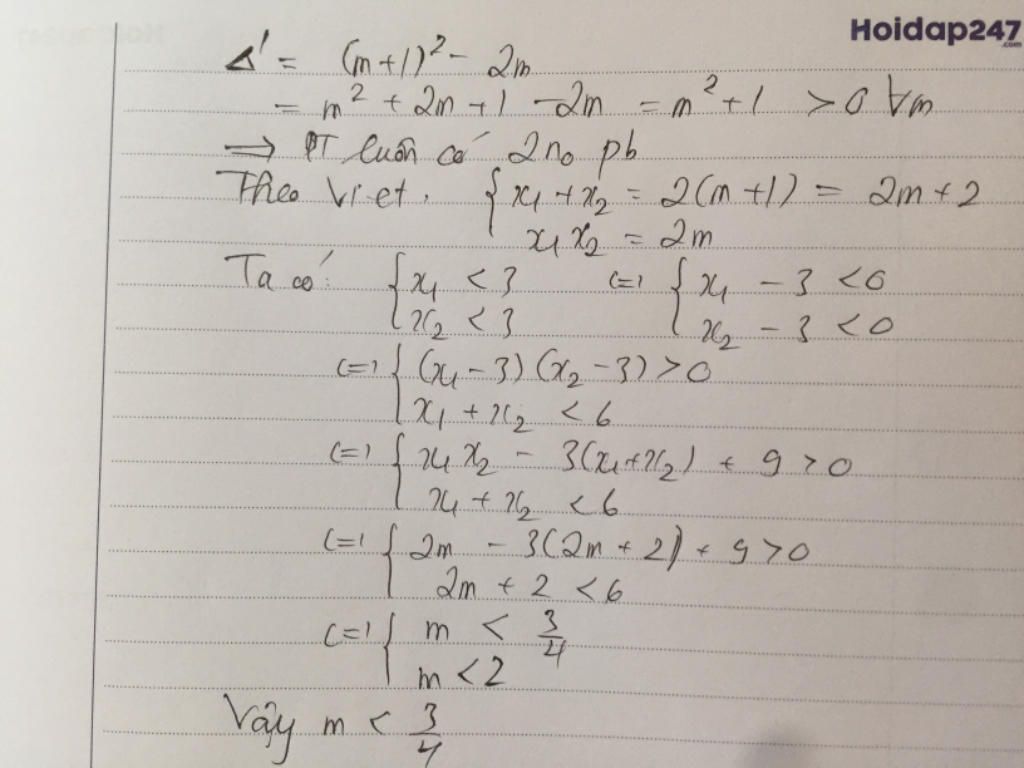 Hoidap247.com
Δ' = (m+1)² - 2m
= m² + 2m + 1 - 2m = m² + 1 > 0 ∀m
=> PT luôn có 2 no pb
Theo Viet. { x₁ + x₂ = 2(m+1) = 2m + 2
x₁x₂ = 2m
Ta có: { x₁ < 3 <=> { x₁ - 3 < 0
x₂ < 3 x₂ - 3 < 0
<=> { (x₁ - 3)(x₂ - 3) > 0
x₁ + x₂ < 6
<=> { x₁x₂ - 3(x₁+x₂) + 9 > 0
x₁ + x₂ < 6
<=> { 2m - 3(2m + 2) + 9 > 0
2m + 2 < 6
<=> { m < 3/4
m < 2
Vậy m < 3/4